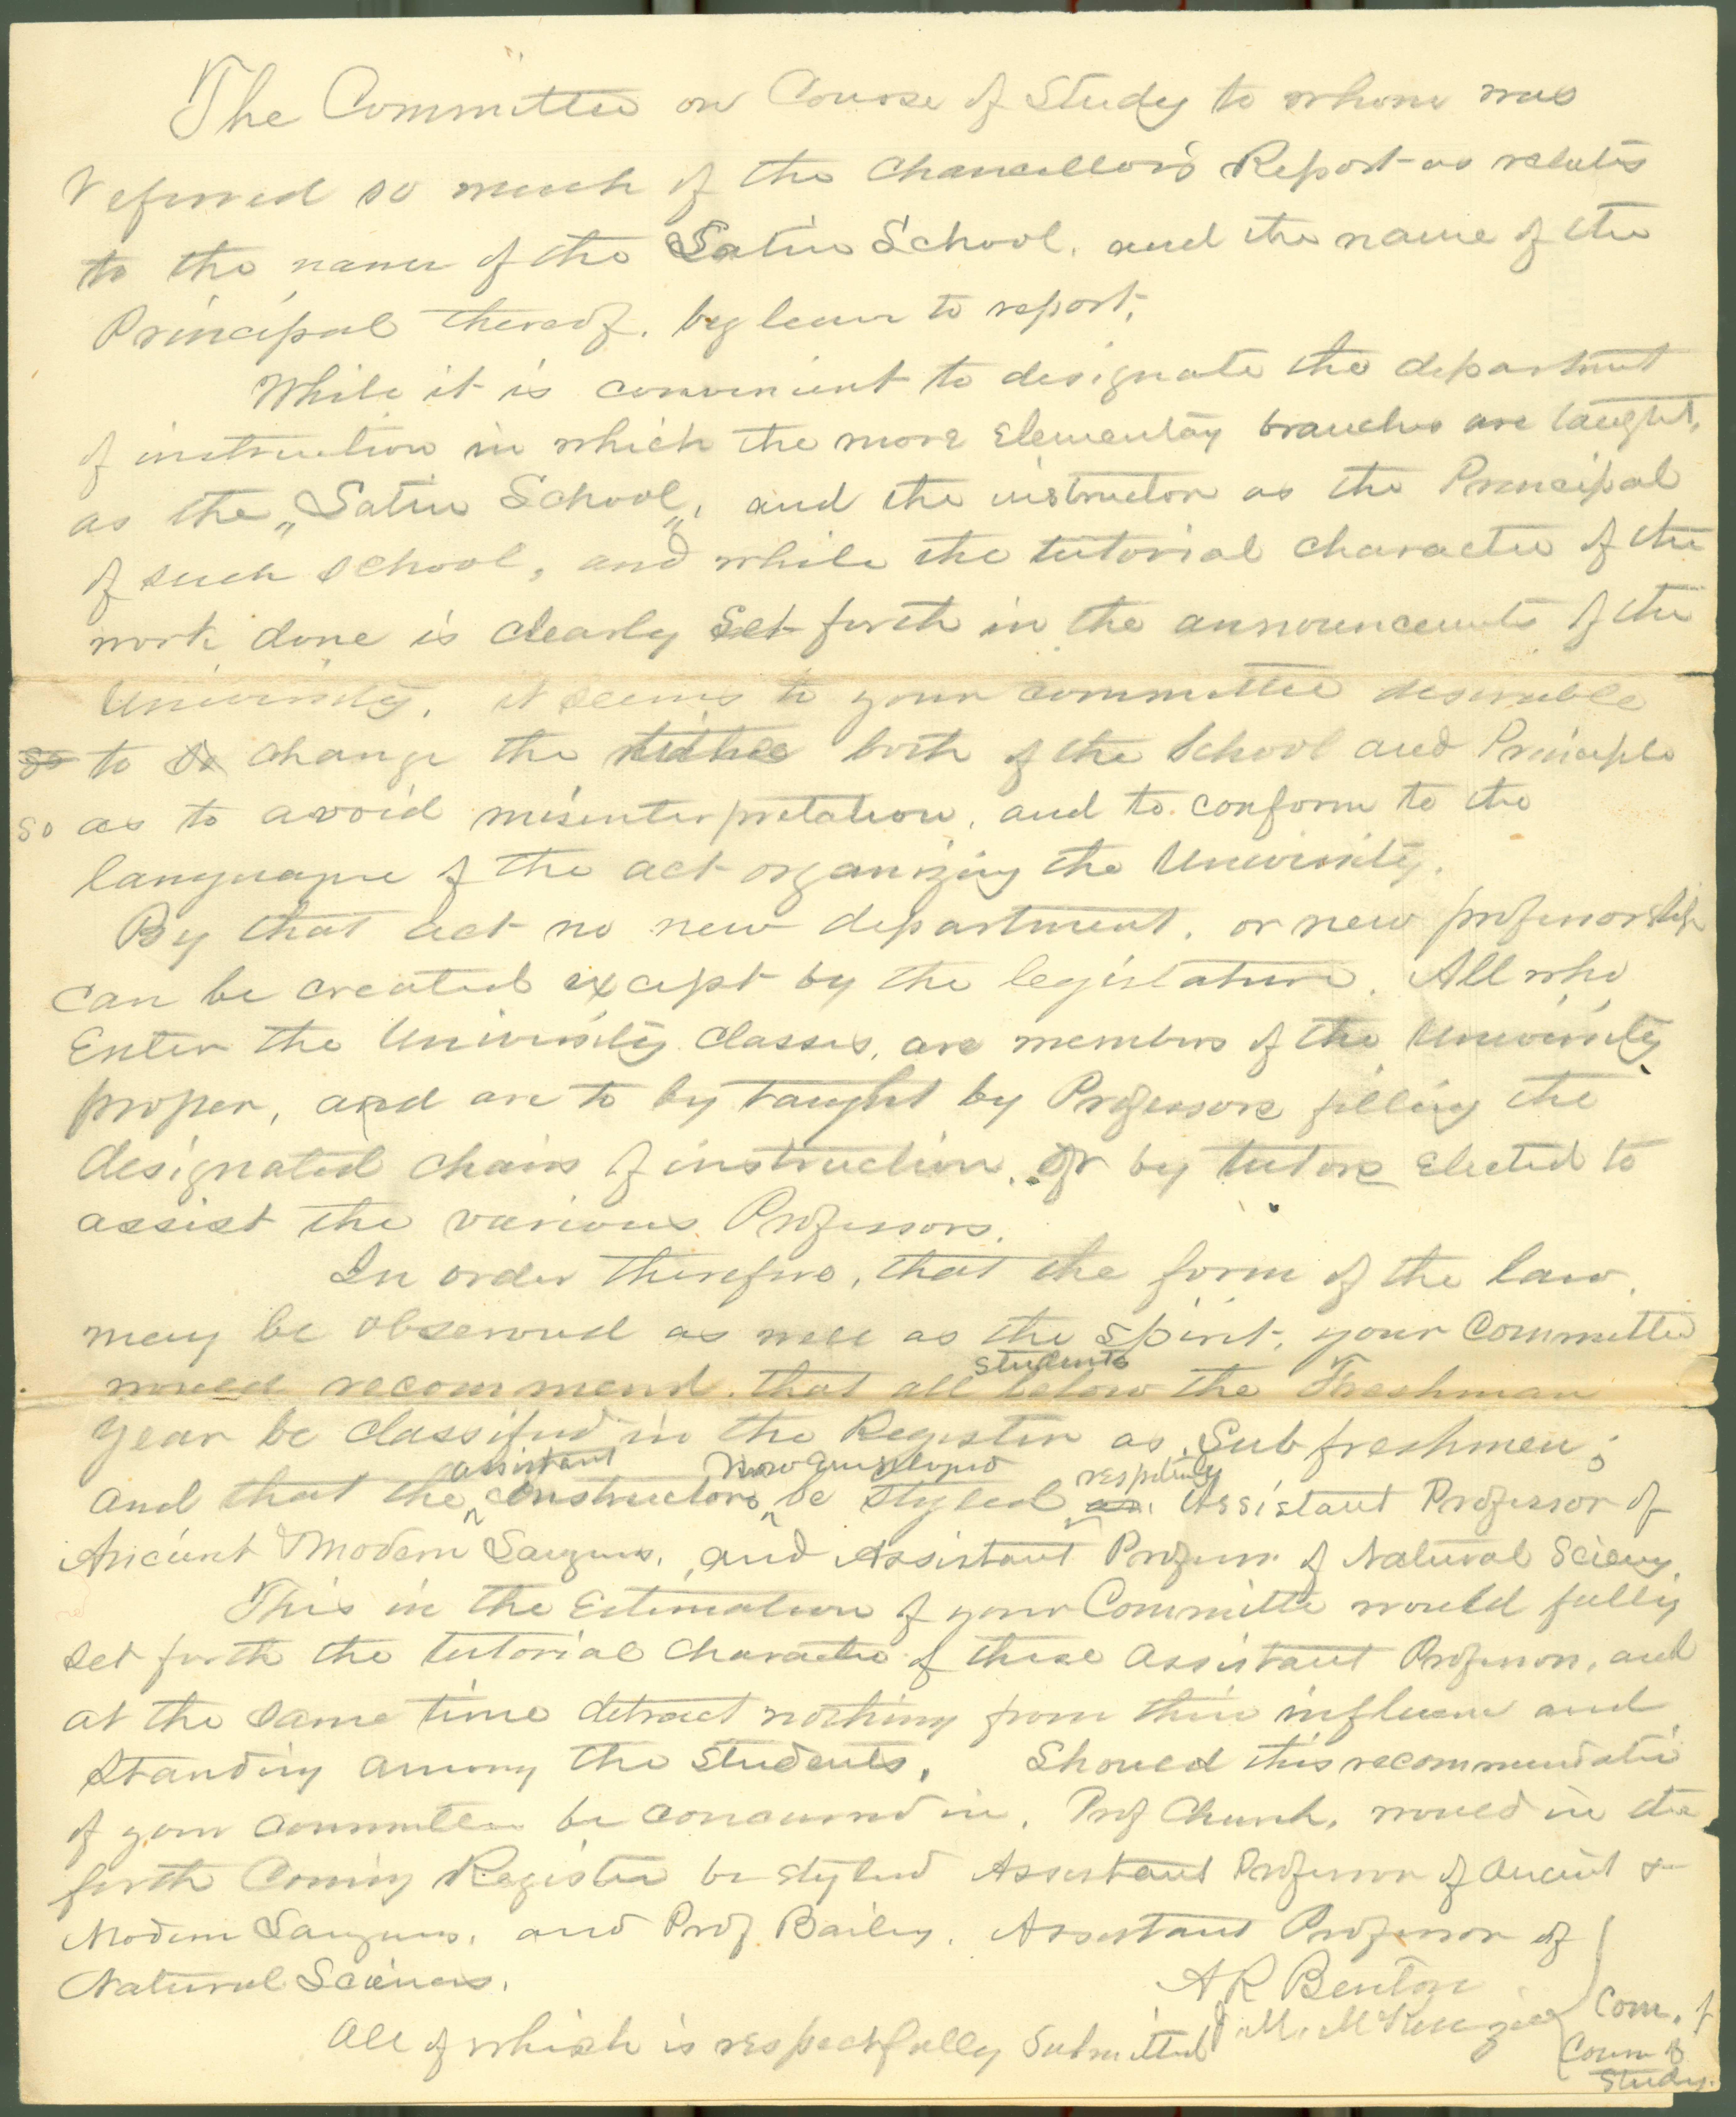 The Committee on Course of Study to whom was
referred so much of the Chancellor's Report as relates
to the name of the Latin School, and the name of the
Principal thereof, beg leave to report,
While it is convenient to designate the department
of instruction in which the more Elementary branches are taught,
as the "Latin School", and the instructor as the Principal
of such school, and while the tutorial character of the
work done is clearly set forth in the announcements of the
University, it seems to your committee desirable
so to change the titles both of the School and Principle
so as to avoid misinterpretation, and to conform to the
language of the act organizing the University.
By that act no new department, or new professorship
can be created except by the legislature. All who
Enter the University classes, are members of the University
proper, and are to by taught by Professors filling the
designated chairs of instruction, or by tutors Elected to
assist the various Professors.
In order therefore, that the form of the law,
may be observed as well as the spirit, your Committee
would recommend that all students below the Freshman
year be classified in the Register as Sub freshmen;
and that the assistant instructors now employed be styled respectively as Assistant Professor of
Ancient & Modern Languages, and Assistant Professor of Natural Science,
This in the Estimation of your Committe would fully
set forth the tutorial character of these assistant Professors, and
at the same time detract nothing from their influence and
standing among the students. Should this recommendation
of your committee be concurred in, Prof Church, would in the
forth coming Register be styled Assistant Professor of Ancient &
Modern Languages, and Prof Bailey, Assistant Professor of
Natural Sciences.
All of which is respectfully submitted
A R Benton
J. M. McKenzie
Com. of
Course of
Study.